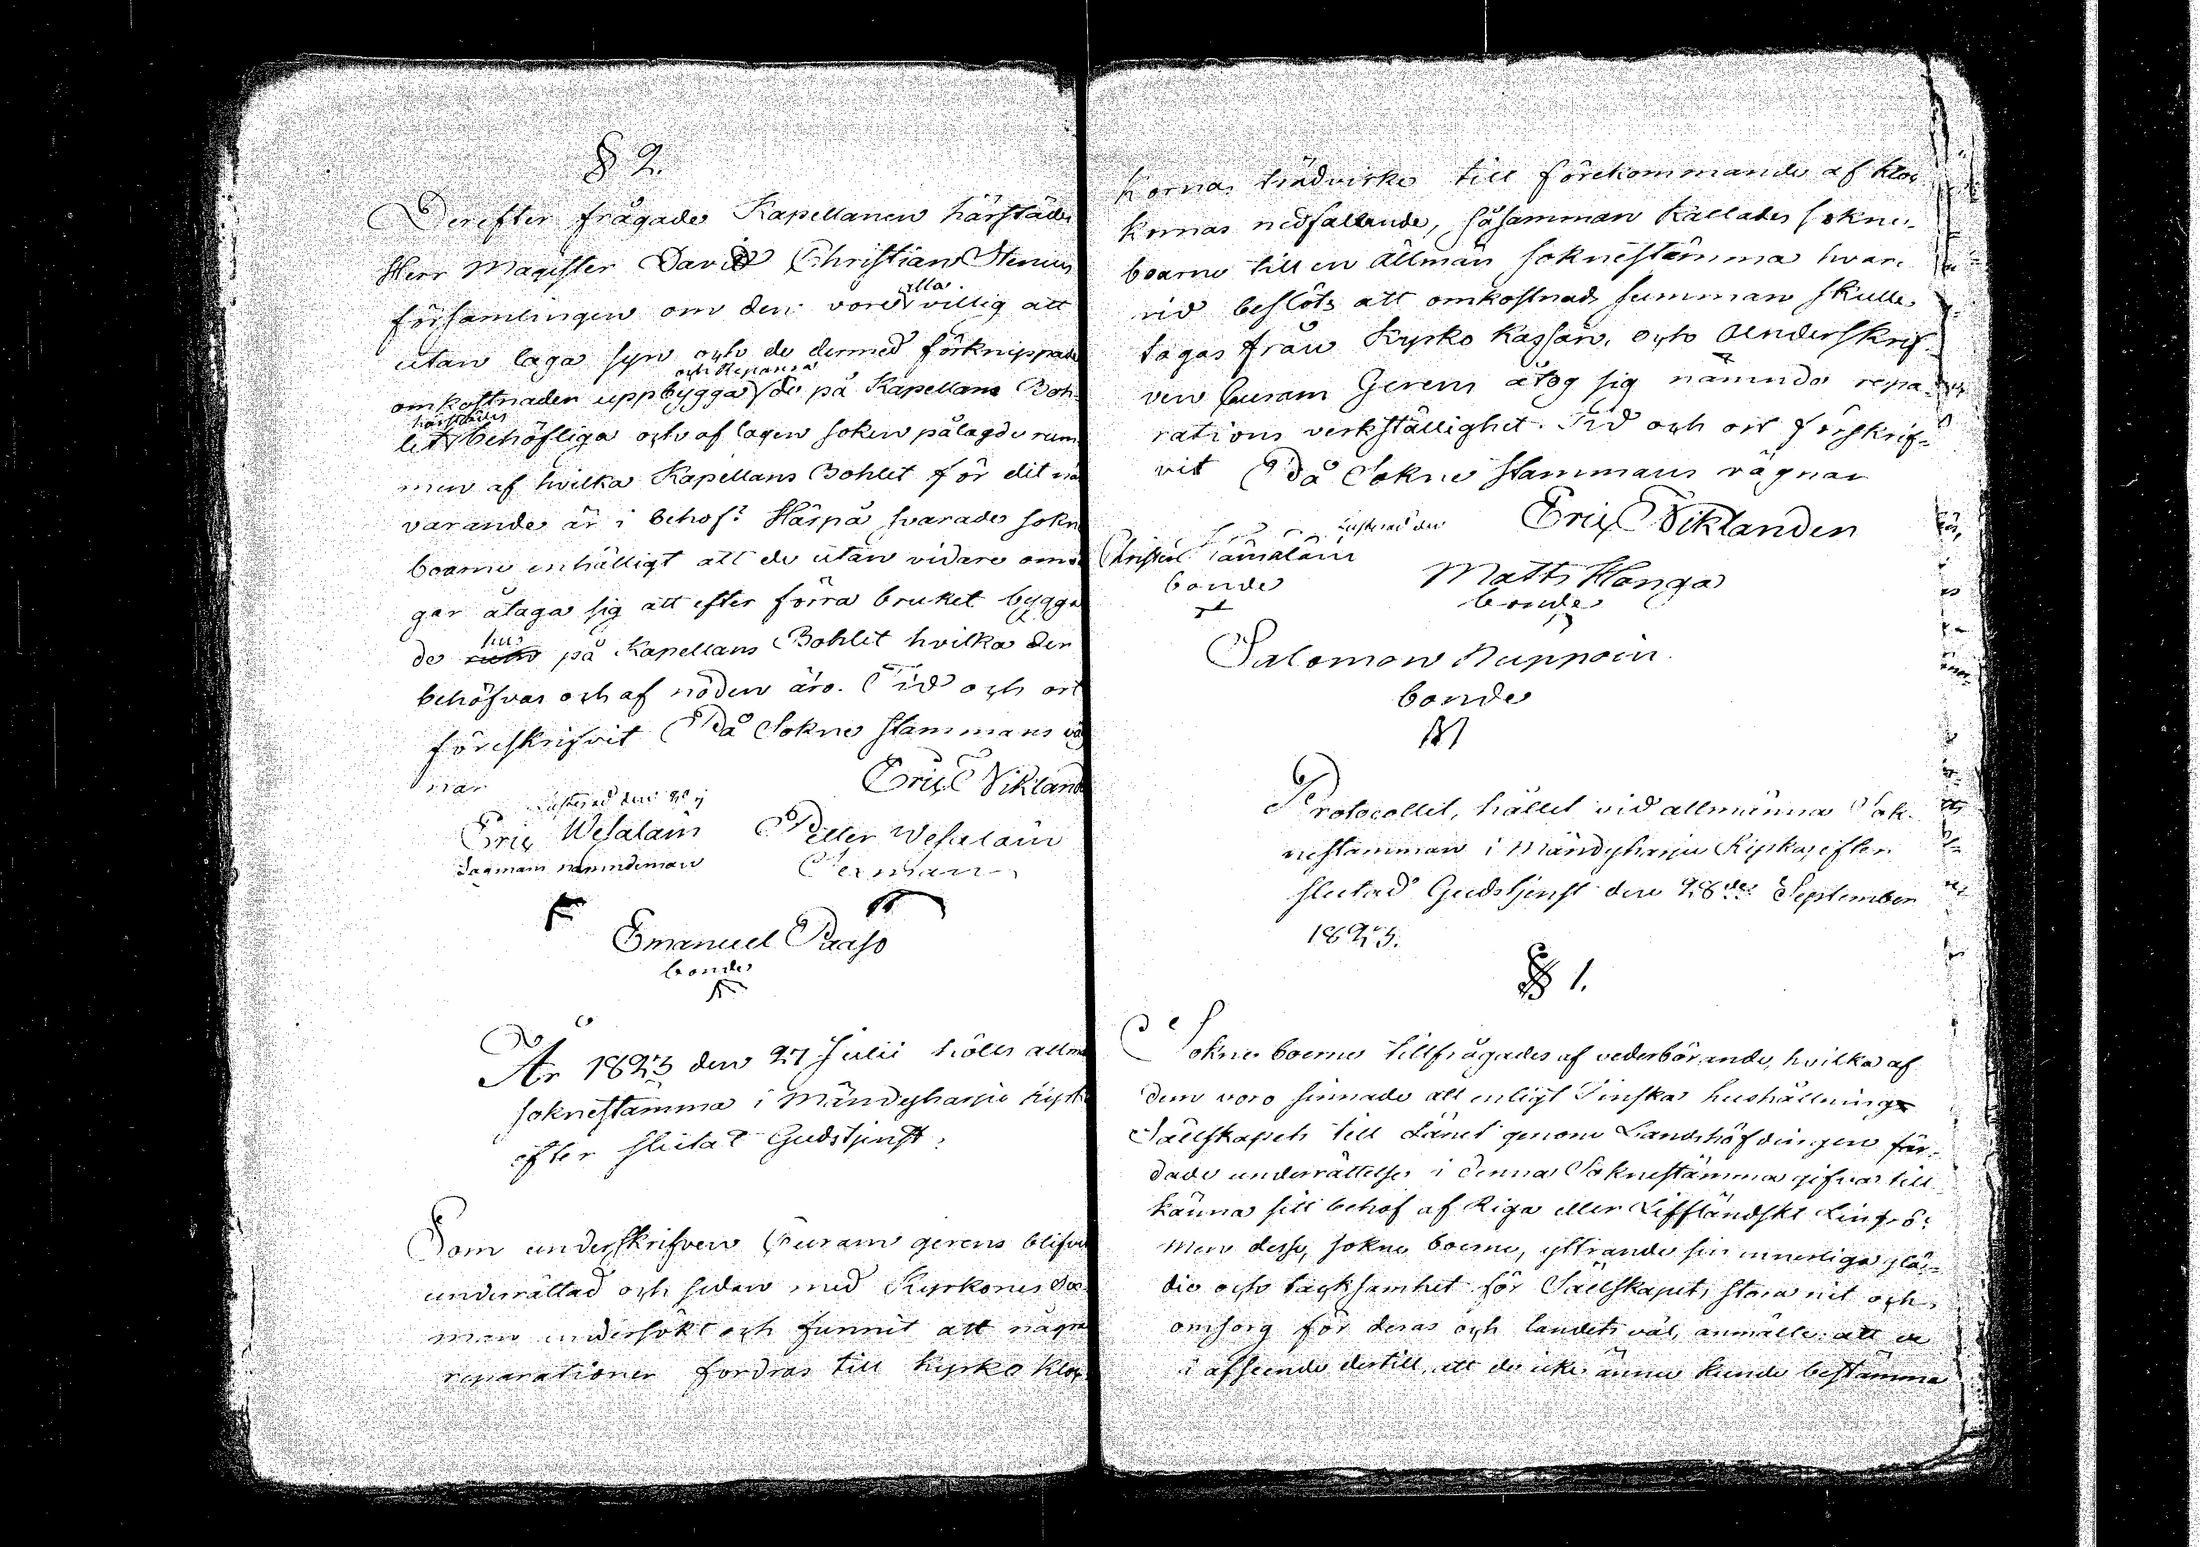 § 2.
Derefter frågade Kapellanen härstädes
Herr Magister David Christian Stenius
församlingen om den vore villig att
utan laga syn och de dermed förknippade
och Reparera
omkostnader uppbygga de på Kapellans Boh-
härstädes
let behöfliga och af lagen soken pålagde rum
men af hvilka Kapellans Bohlet för det när
varande är i behof? Härpå svarades sokne
boarne enhälligt att de utan vidare
gar åtaga sig att efter förra bruket bygga
hus
de på Kapellans Bohlet hvilka der
behöfvas och af nöden äro. Tid och ort
föreskrifvit På Sokne stammans väg
nar
Eric Wikland
Justerad den
Eric Wesalain Petter Wesalain
nämndeman
Emanuel Paaso
bonde
År 1823 den 27 Julii hölls allmän
soknestämma i Mändyharju Kyrka
efter slutat Gudstjenst.
Som underskrifven Curam gerens blifvit
underrättad och sedan med Kyrkones
män undersökt och funnit att några
reparationer fordras till Kyrko kloc
kornas trädvirke till förekommande af kloc
kornas nedfallande, så samman kallades sokne-
boarne till en allmän soknestämma hvar-
vid beslöts att omkostnads summan skulle
tagas från Kyrko Kassan, och Underskrif-
ven Curam Gerens åtog sig nämnda repa-
rations verkställighet. Tid och ort förskrif-
vit På Sokne stammans vägnar
Eric Wiklanden
Justerad den
Christer Tämäläin
bonde
Matts Honga
bonde
Salomon Nuppoin
bonde
Protocollet, hållet vid allmänna Sok-
nestamman i Mändyharju Kyrka, efter
slutad Gudstjenst den 28de September
1823.
§ 1.
Sokne boerne tillfrågades af vederbörande, hvilka af
dem voro sinnade att enligt Finska hushållnings
Sällskapets till Länet genom Landshöfdingen fär-
dade underrättelse i denna Soknestämma gifva till
känna sitt behof af Riga eller Liffländskt Linfrö:
Men desse, sokne boerne, yttrande sin innerliga glä-
die och tacksamhet för Sällskapets stora nit och
omsorg för deras och landets väl, anmälte: att de
i afseende dertill, att de icke ännu kunde bestämma